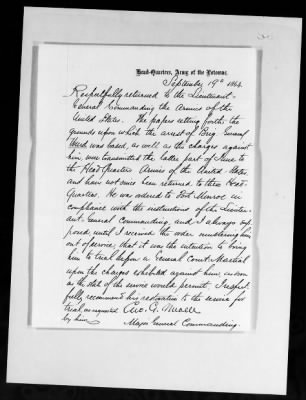 Head-Quarters, Army of the Potomac,
September 19th 1864.
Respectfully returned to the Lieutenant-
General Commanding the Armies of the
United States. The papers setting forth the
grounds upon which the arrest of Brig. General
Ward was based, as well as the charges against
him, were transmitted the latter part of June to
the Head-Quarters Armies of the United States
and have not since been returned to these Head-
Quarters. He was ordered to Fort Monroe in
compliance with the instructions of the Lieuten-
ant-General Commanding, and I always sup-
posed, until I received the order mustering him
out of service, that it was the intention to bring
him to trial before a General Court-Martial
upon the charges exhibited against him, as soon
as the state of the service would permit. I respect-
fully recommend his restoration to the service for
trial, as requested
by him,
Geo. G. Meade
Major General Commanding.